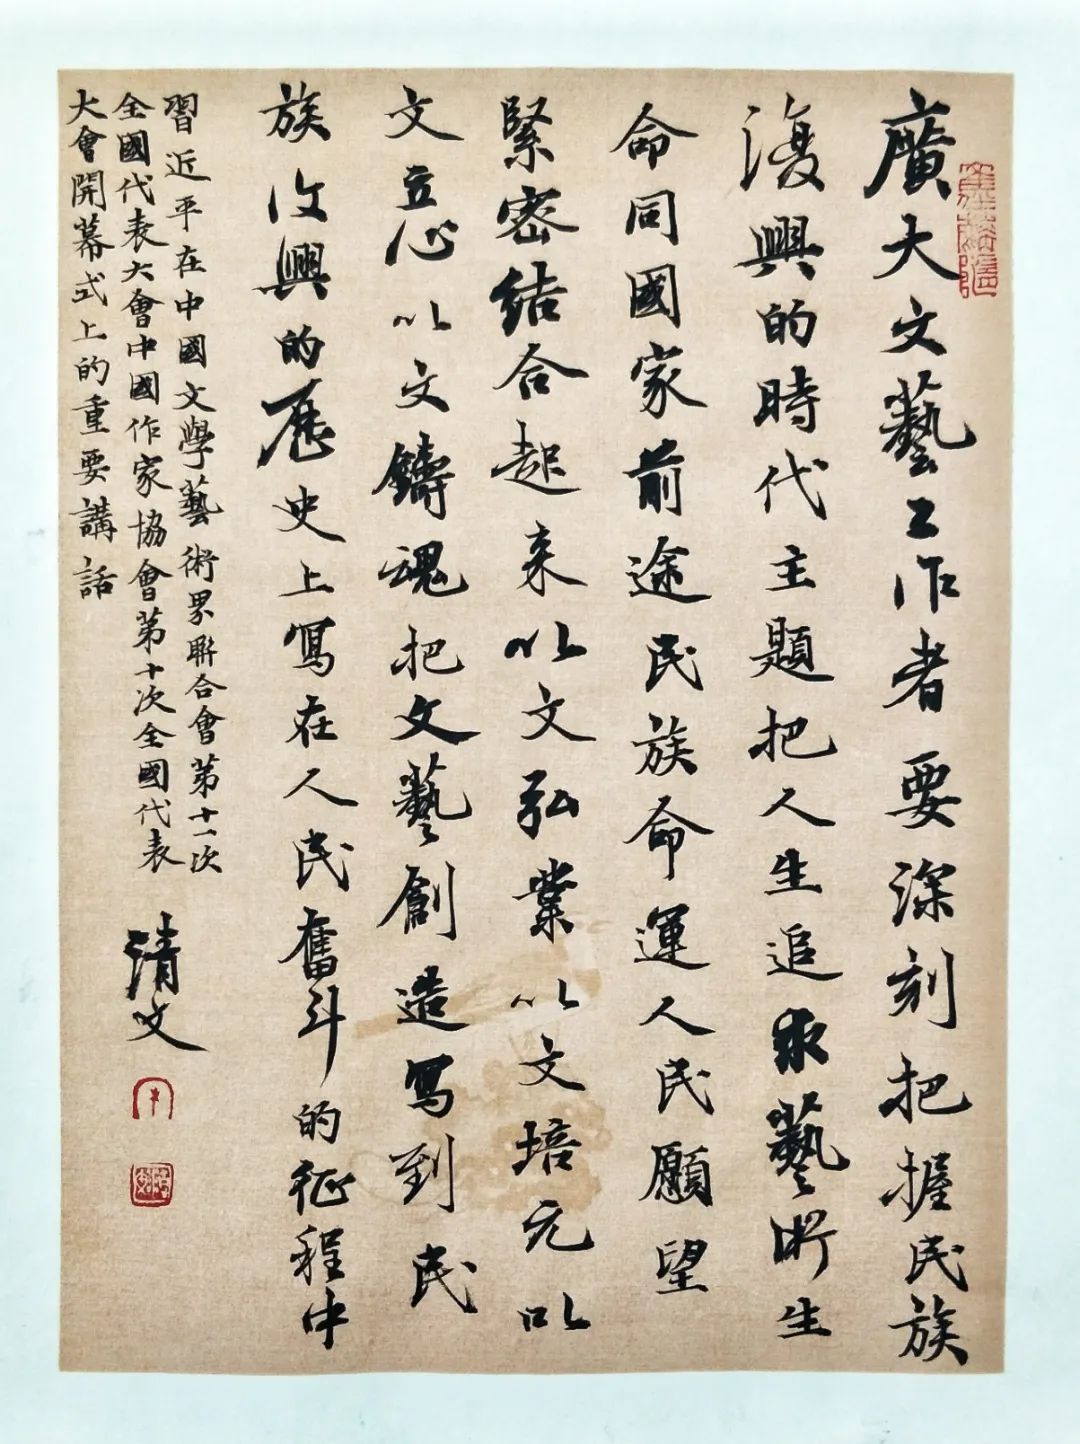 廣大文藝工作者要深刻把握民族
復興的時代主題把人生追求藝術生
命同國家前途民族命運人民願望
緊密結合起来以文弘業以文培元以
文立心以文鑄魂把文藝創造寫到民
族复興的歷史上寫在人民奮斗的征程中
習近平在中國文學藝術界聯合會第十一次
全國代表大會中國作家協會第十次全國代表
大會開幕式上的重要講話
清文